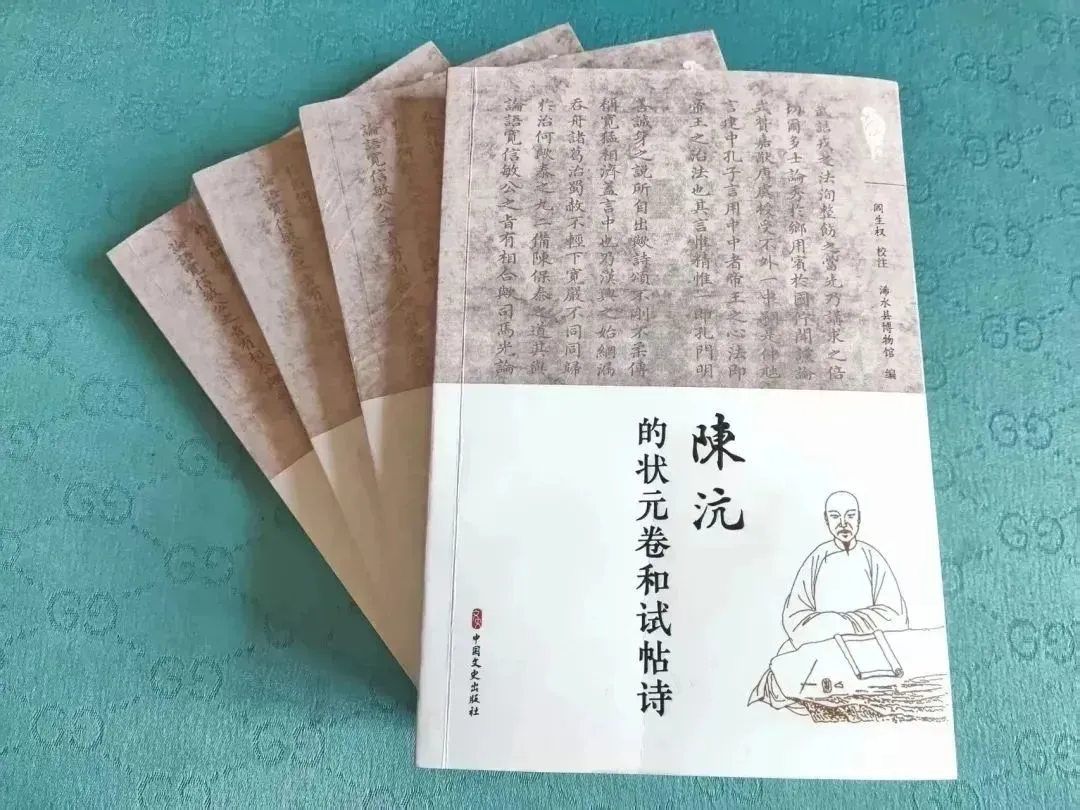 武詰戎之法洵整飭之當先乃講求之倍
爾多士論秀於鄉用賓於國佇聞讜論
贊嘉猷唐虞授受不外一中
言建中孔子言用中中者帝王之心法即
帝王之治法也其言惟精惟一即孔門明
善誠身之說所自出歟詩頌不剛不柔傳
稱寬猛相濟蓋言中也乃漢興之始網漏
吞舟諸葛治蜀赦不輕下寬嚴不同同歸
於治何歟泰之九二備陳保泰之道其與
論語寬信敏公之旨有相合歟司馬光論
阎生权 校注 浠水县博物馆 编
陳沆
的状元卷和试帖诗
中国文史出版社
論語寬信敏公之旨有相
論語寬信敏公之旨有
論語寬信敏公之旨有相